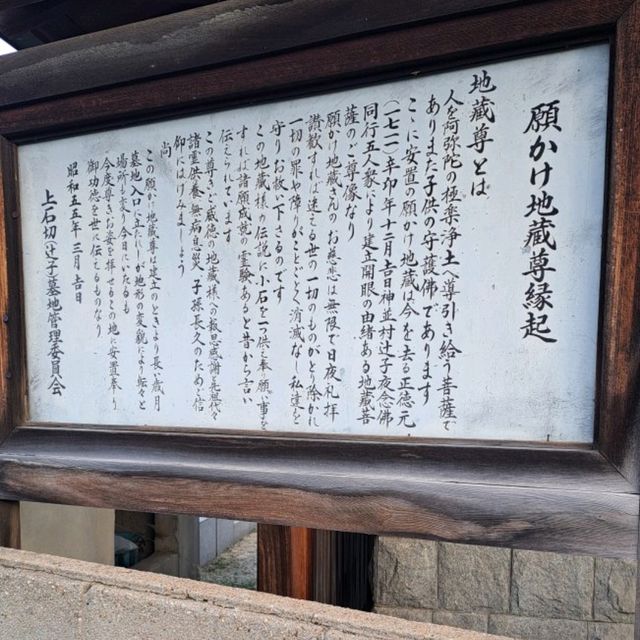 願かけ地蔵尊縁起
地蔵尊とは
人を阿弥陀の極楽浄土へ導引き給う菩薩で
ありまた子供の守護佛であります
ここに安置の願かけ地蔵は今を去る正徳元
(一七一一)辛卯年十二月吉日神並村辻子夜念佛
同行五人衆により建立開眼の由緒ある地蔵菩
薩のご尊像なり
願かけ地蔵さんのお慈悲は無限で日夜礼拝
讃歎すれば速に今世の一切のものがとり除かれ
一切の罪や障りがことごとく消滅なし私達を
守りお救い下さるのです
この地蔵様の伝説に小石を一つ供え奉り願い事を
すれば諸願成就の霊験あると昔から言い
伝えられています
この尊きご威徳の地蔵様への報恩感謝と無縁
諸霊供養無病息災 子孫長久のため今信
仰にはげみましょう
尚
この願かけ地蔵尊は建立のときより長い歳月
墓地入口に在わしが地形の変貌により転々と
場所も変り今日にいたるも
今度尊きお姿を拝せるこの地に安置奉り
御功徳を世に伝えるものなり
昭和五五年三月吉日
上石切(辻子)墓地管理委員会